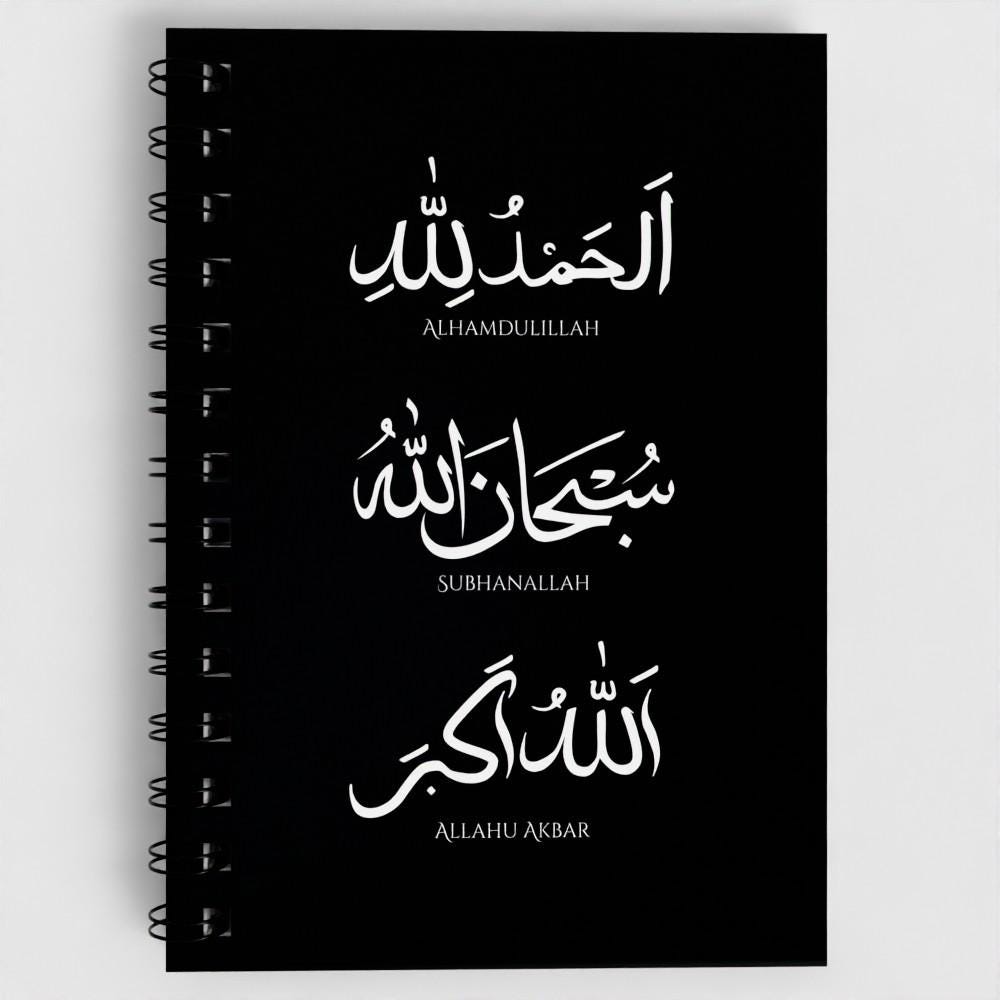 اَلحَمْدُ لِلّٰهِ
ALHAMDULILLAH
سُبْحَانَ اللّٰهُ
SUBHANALLAH
اَللّٰهُ اَكبَر
ALLAHU AKBAR